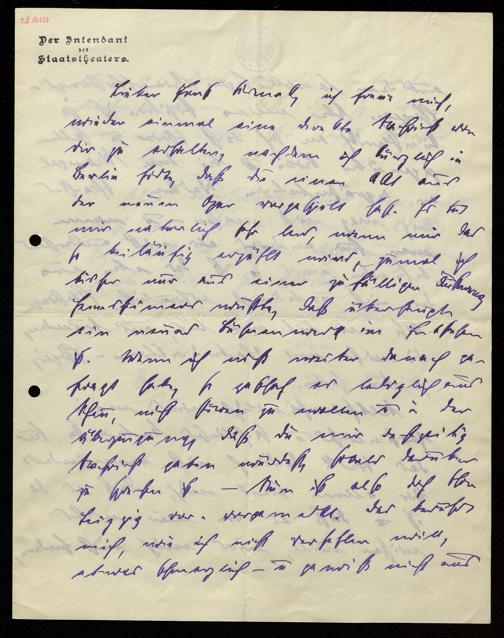 Der Intendant
des
Staatstheaters.
Lieber Ernst ich freue mich,
wieder einmal eine direkte Nachricht von
dir zu erhalten, nachdem ich kürzlich in
Berlin hörte, daß du einen Akt aus
der neuen Oper vorgespielt hast. Es tut
mir natürlich sehr leid, wenn mir das
so beiläufig erzählt wird, zumal ich
bisher nur aus einer zufälligen
daß überhaupt
ein neues Bühnenwerk im Entstehen
ist. Wenn ich nicht weiter danach ge-
fragt habe, so geschah es lediglich aus
nicht stören zu wollen u. in der
Überzeugung, daß du mir rechtzeitig
Nachricht geben würdest, sobald darüber
zu sprechen ist – Nun ist also doch
Leipzig
mich, wie ich nicht verhehlen will,
etwas schmerzlich – u. gewiß nicht aus